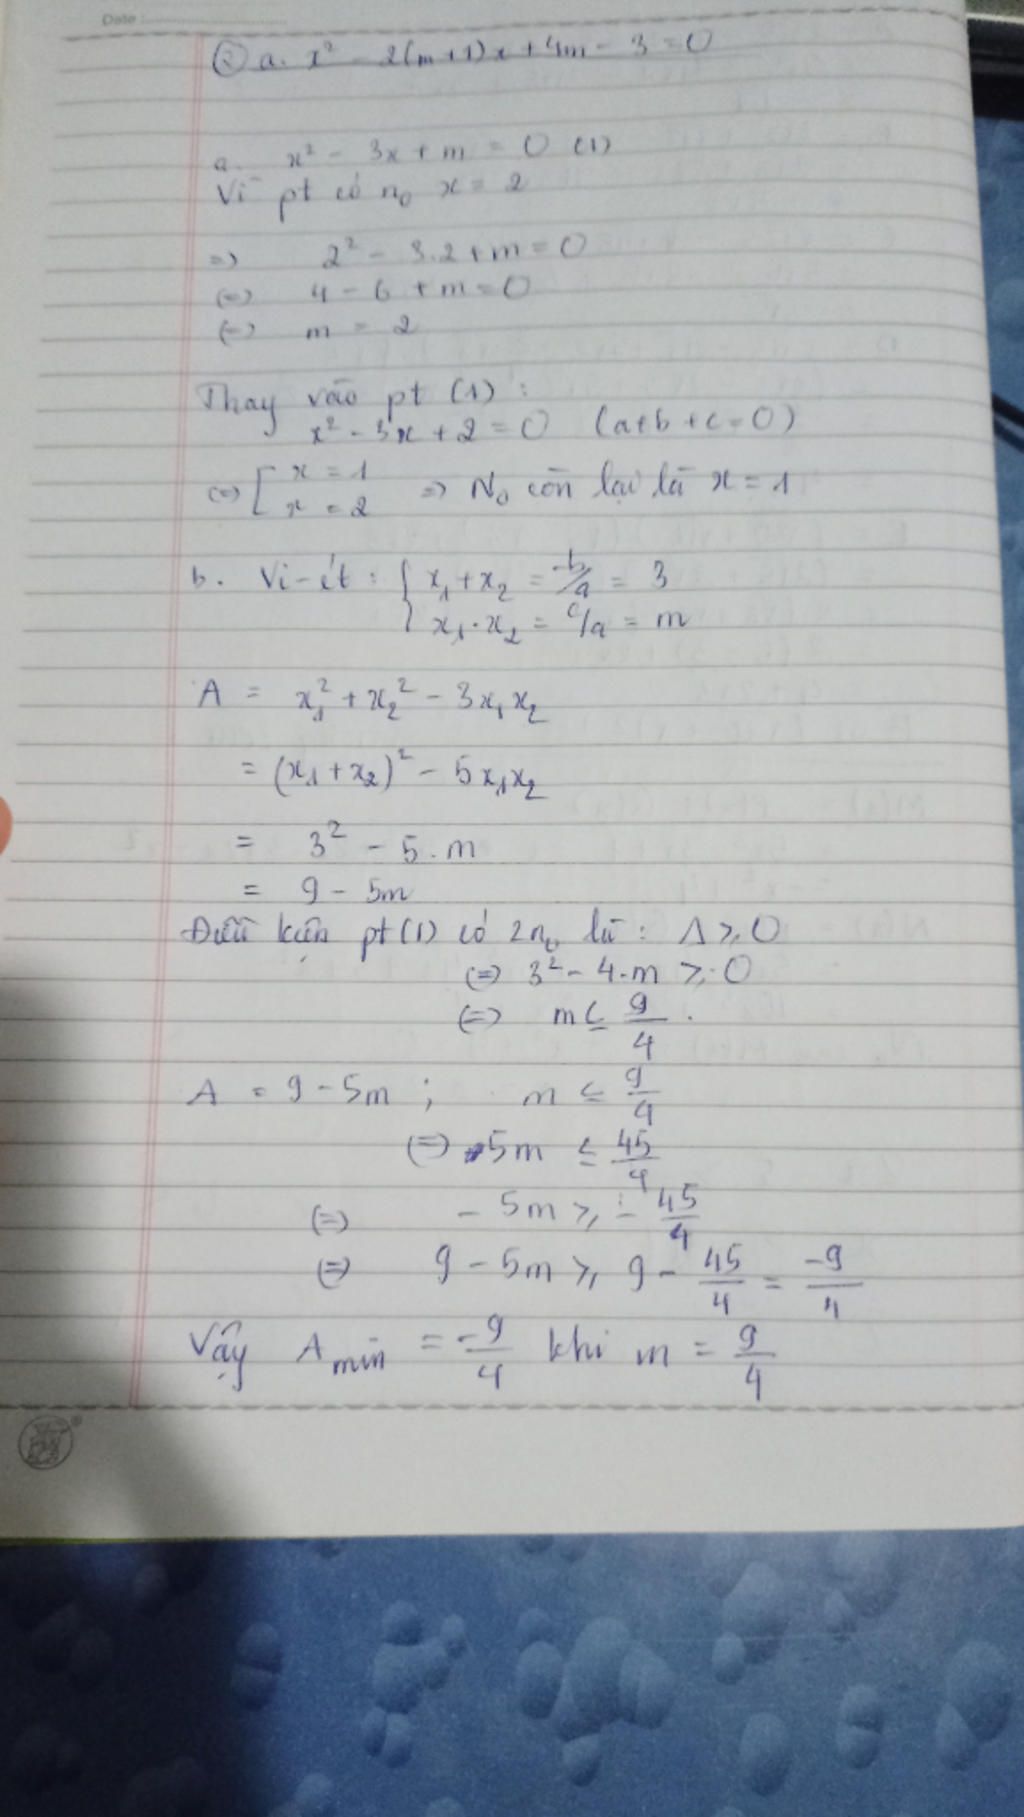 Date :
② a. x² - 2(m+1)x + 4m - 3 = 0
a. x² - 3x + m = 0 (1)
Vì pt có n₀ x = 2
=> 2² - 3.2 + m = 0
(=) 4 - 6 + m = 0
(=) m = 2
Thay vào pt (1) :
x² - 3x + 2 = 0 (a+b+c=0)
(=) [ x = 1
x = 2 => N₀ còn lại là x = 1
b. Vi-ét : { x₁ + x₂ = -b/a = 3
x₁ . x₂ = c/a = m
A = x₁² + x₂² - 3x₁x₂
= (x₁ + x₂)² - 5x₁x₂
= 3² - 5 . m
= 9 - 5m
Điều kiện pt (1) có 2n₀ là : Δ ≥ 0
(=) 3² - 4.m ≥ 0
(=) m ≤ 9/4 .
A = 9 - 5m ; m ≤ 9/4
(=) 5m ≤ 45/4
(=) - 5m ≥ - 45/4
(=) 9 - 5m ≥ 9 - 45/4 = -9/4
Vậy A min = -9/4 khi m = 9/4